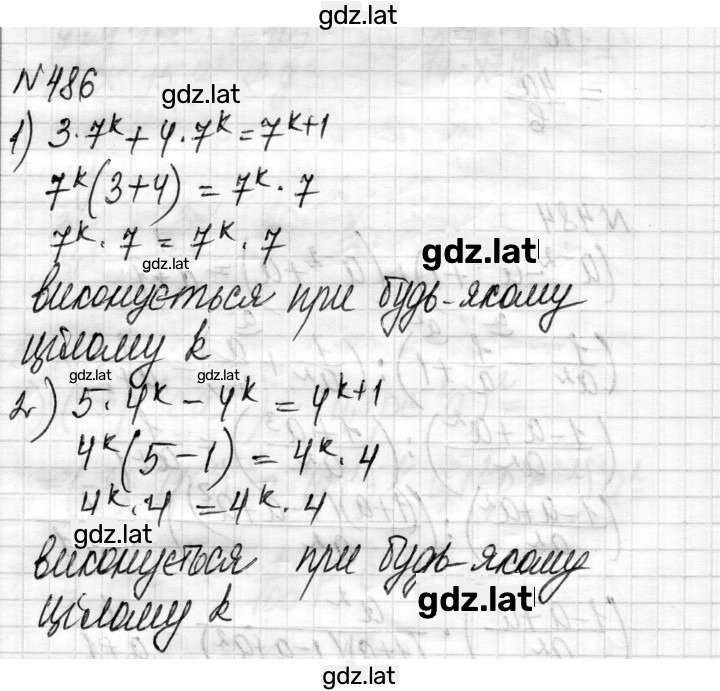 gdz.lat
№486
gdz.lat
1) 3·7^k + 4·7^k = 7^{k+1}
7^k(3+4) = 7^k·7
7^k·7 = 7^k·7
gdz.lat
gdz.lat
виконується при будь-якому
цілому k
gdz.lat gdz.lat
2) 5·4^k - 4^k = 4^{k+1}
4^k(5-1) = 4^k·4
4^k·4 = 4^k·4
gdz.lat
виконується при будь-якому
цілому k
gdz.lat
gdz.lat